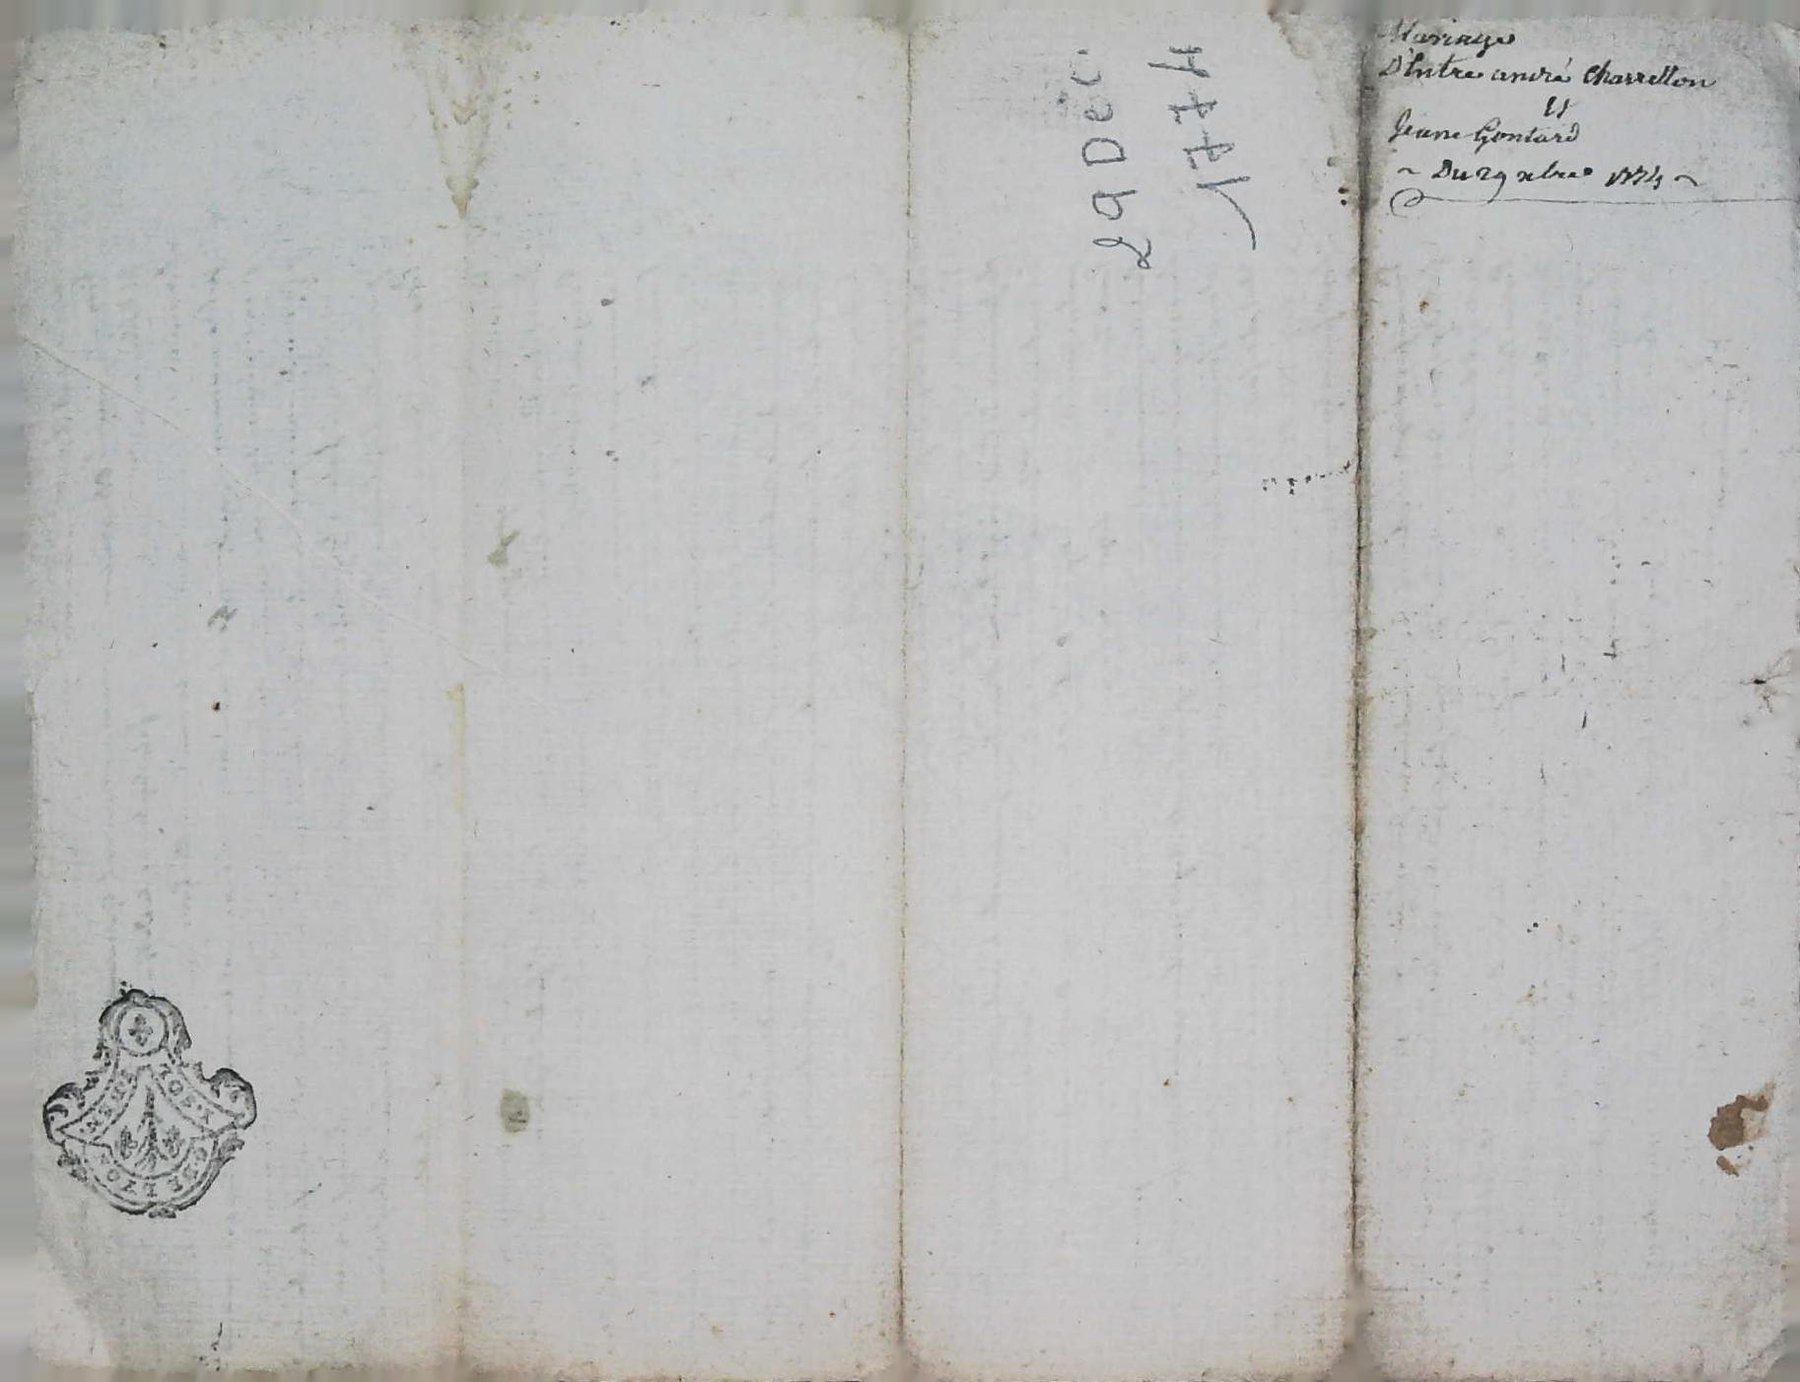 Mariage
D'Entre andré Charretton
Et
Jeane Gontard
~ Du 29 xbre 1774 ~
29 Dec.
1774
DE LYON